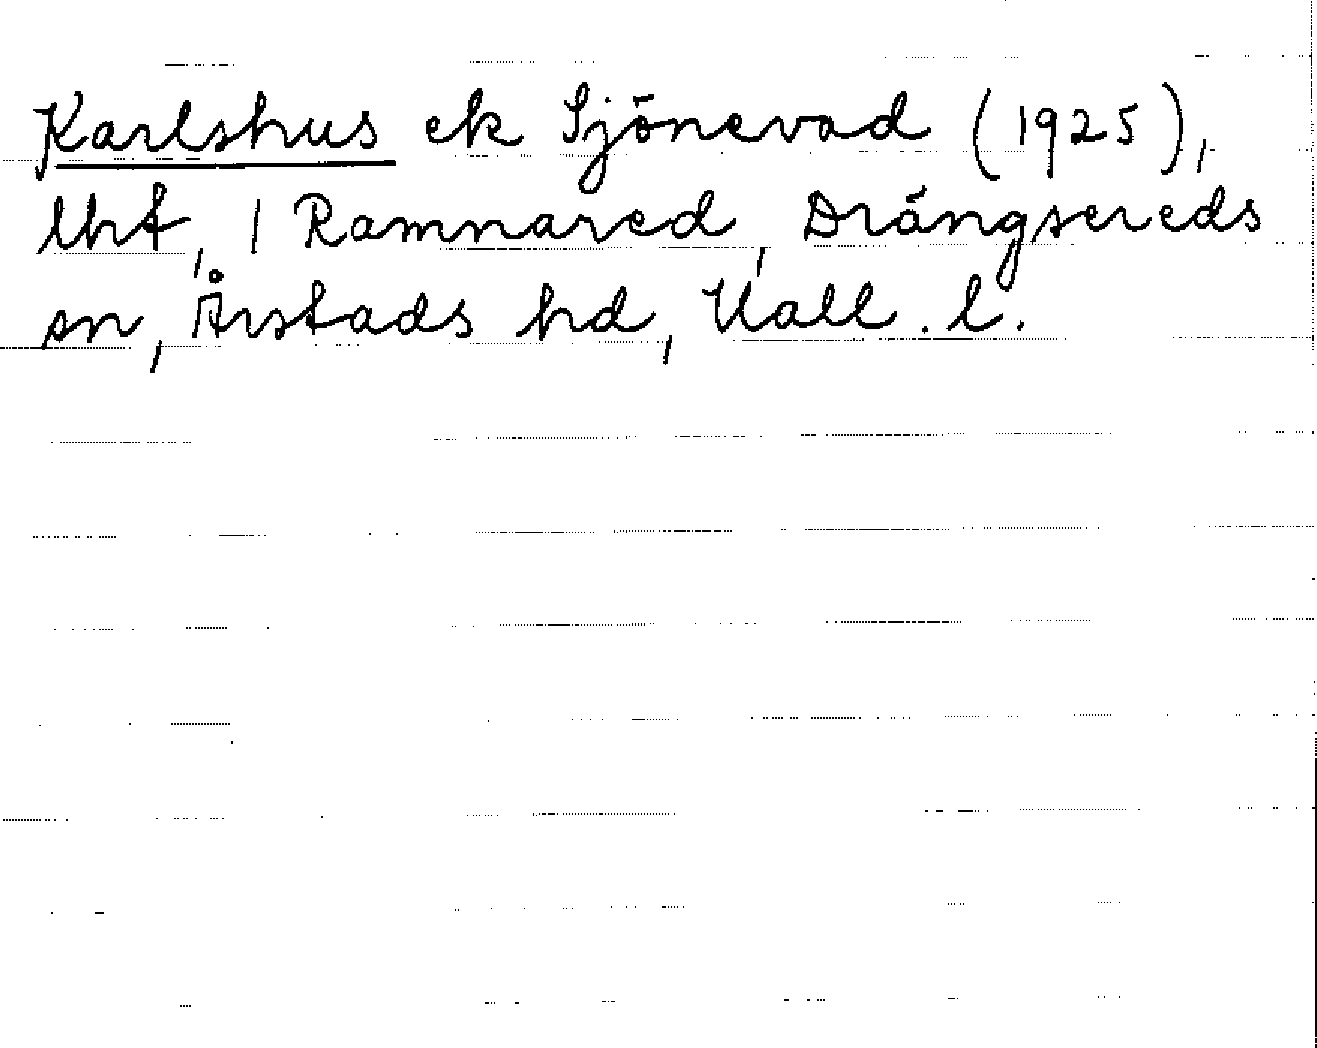 Karlshus ek Sjönevad (1925),
lht, 1 Ramnared, Drängsereds
sn, Årstads hd, Hall. l.